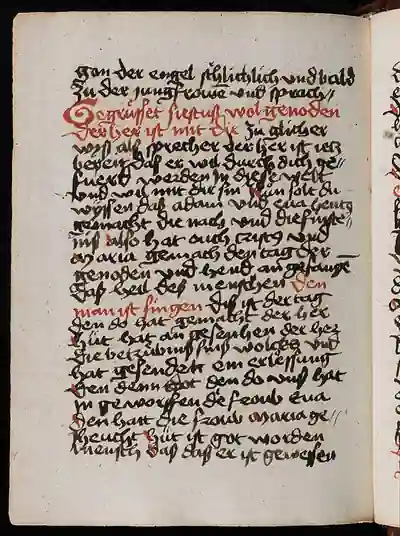 gon der engel schlichlich und bald
zu der jungfrowen und sprach //
Gegrüsset siest wol genoden
der her ist mit dir zu glicher
wÿß als sprecher der her ist ietz
 das er wil durch dich ge //
fuerd werden in diese welt
und wil mit dir sin Nun solt du
wÿssen das adam und eua hentz
gemacht die nach und die finste //
niß also hat ouch cristus und
maria gemach den tag der
genoden und hend an gefangē
daß heil des menschen den
man ist singen diß ist der tag
den do hat gemacht der her
hüt hat an gesechen der her
die betrübniß sinß volckes und
hat gesendett ein erlessung
den denn tott den do unß hat
in geworffen de froub Eua
den hatt die froub maria ge //
 hüt ist got worden
mensch daß daß er ist gewessen